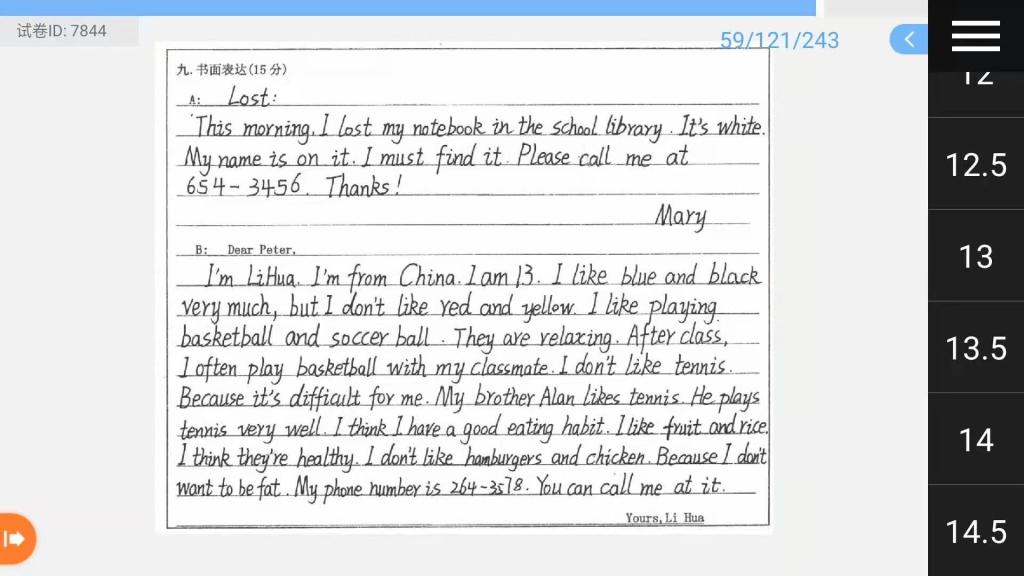 试卷ID: 7844
59/121/243
九. 书面表达(15分)
A: Lost:
This morning, I lost my notebook in the school library. It's white.
My name is on it. I must find it. Please call me at
654-3456. Thanks!
Mary
B: Dear Peter,
I'm LiHua. I'm from China. I am 13. I like blue and black
very much, but I don't like red and yellow. I like playing
basketball and soccer ball. They are relaxing. After class,
I often play basketball with my classmate. I don't like tennis.
Because it's difficult for me. My brother Alan likes tennis. He plays
tennis very well. I think I have a good eating habit. I like fruit and rice.
I think they're healthy. I don't like hamburgers and chicken. Because I don't
want to be fat. My phone number is 264-3578. You can call me at it.
Yours, Li Hua
12
12.5
13
13.5
14
14.5